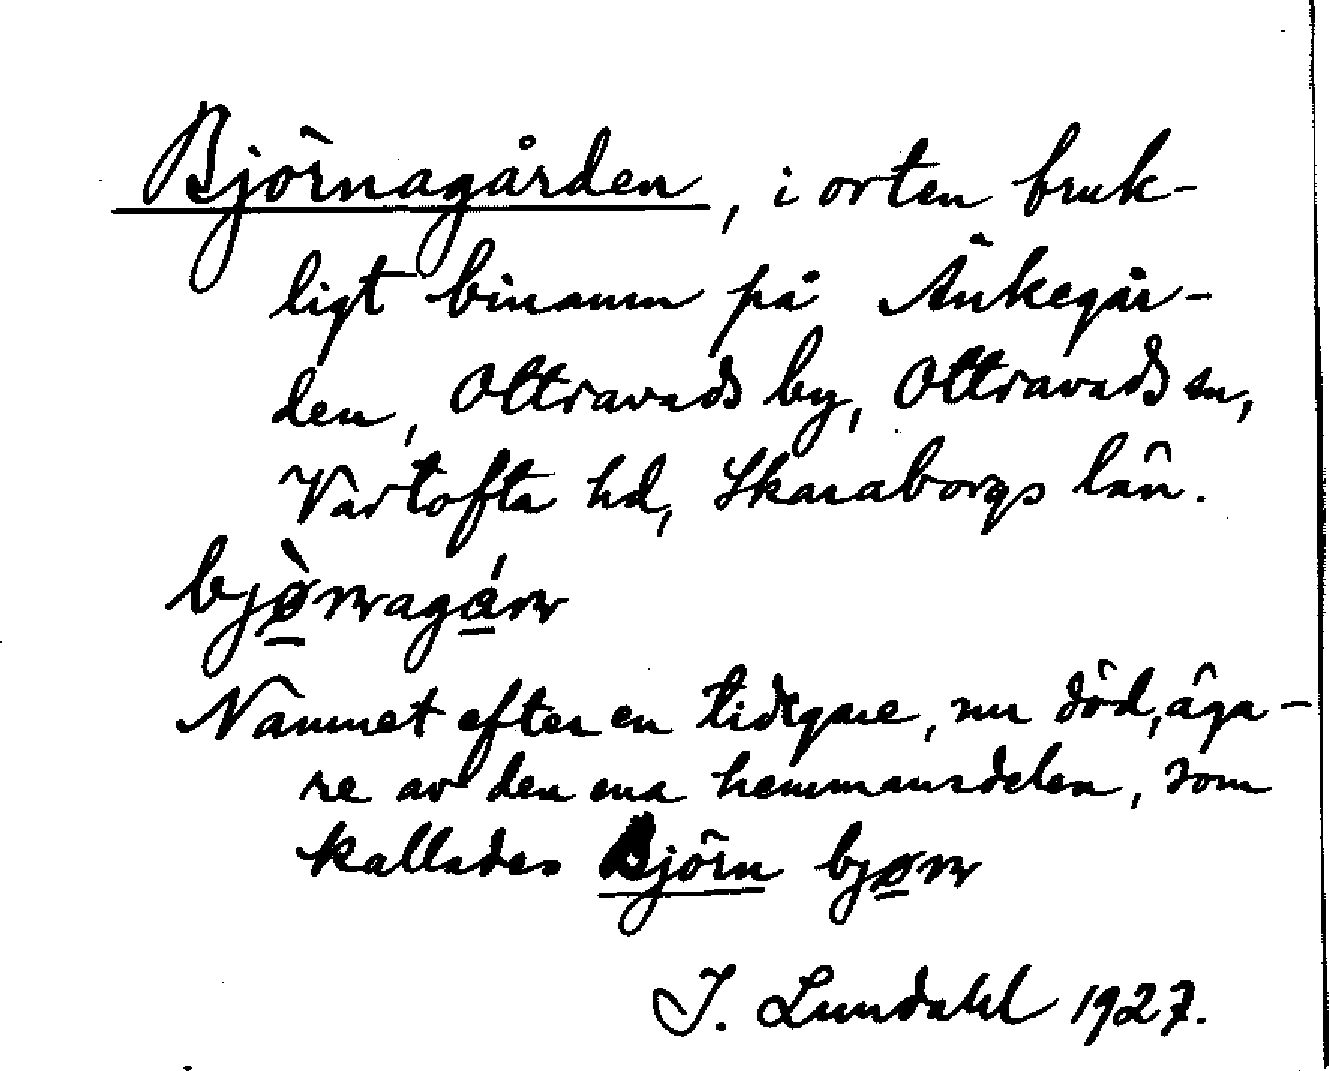 Björnagården, i orten bruk-
ligt binamn på Änkegår-
den, Ottravads by, Ottravads sn,
Vartofta hd, Skaraborgs län.
bjø̱̀rnagá̱rn
Namnet efter en tidigare, nu död, äga-
re av den ena hemmansdelen, som
kallades Björn bjø̱rn
J. Lundahl 1927.